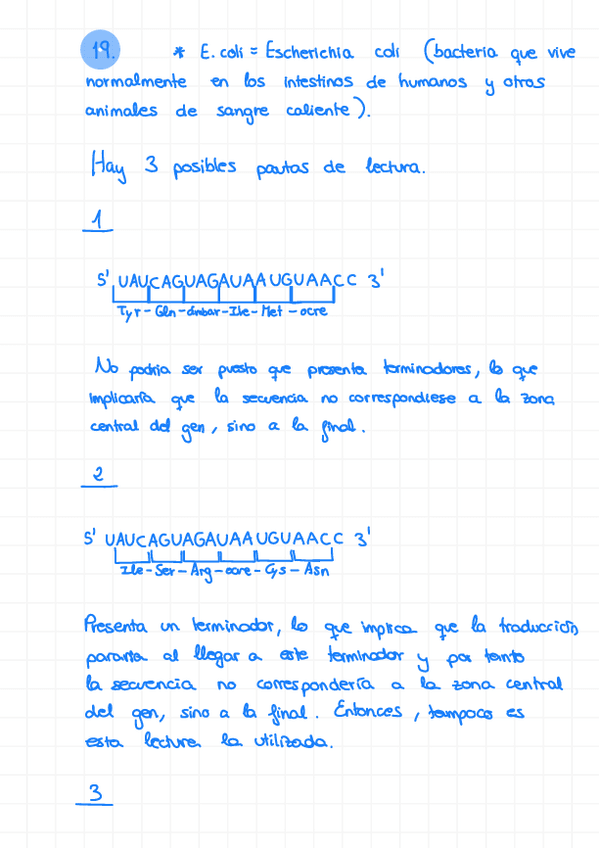 19. * E. coli = Escherichia coli (bacteria que vive
normalmente en los intestinos de humanos y otros
animales de sangre caliente).
Hay 3 posibles pautas de lectura.
1
5' UAUCAGUAGAUAAUGUAACC 3'
Tyr - Gln - ámbar - Ile - Met - ocre
No podría ser puesto que presenta terminadores, lo que
implicaría que la secuencia no correspondiese a la zona
central del gen, sino a la final.
2
5' UAUCAGUAGAUAAUGUAACC 3'
Ile - Ser - Arg - ocre - Cys - Asn
Presenta un terminador, lo que implica que la traducción
pararía al llegar a este terminador y por tanto
la secuencia no correspondería a la zona central
del gen, sino a la final. Entonces, tampoco es
esta lectura la utilizada.
3